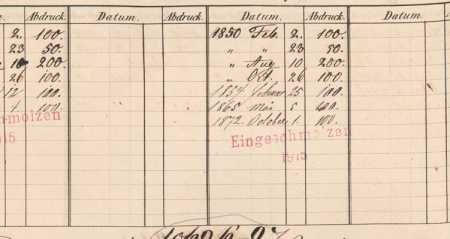 Abdruck. Datum. Abdruck. Datum. Abdruck. Datum.
2. 100. 1850 Feb. 2. 100.
23 50. " " 23. 50.
10 200. " Aug. 10 200.
26 100. " Oct. 26 100.
12 100. 1854 25 100.
1 100. 1865 Mai 5
1872 October 1 100.
Eingeschmolzen
1915